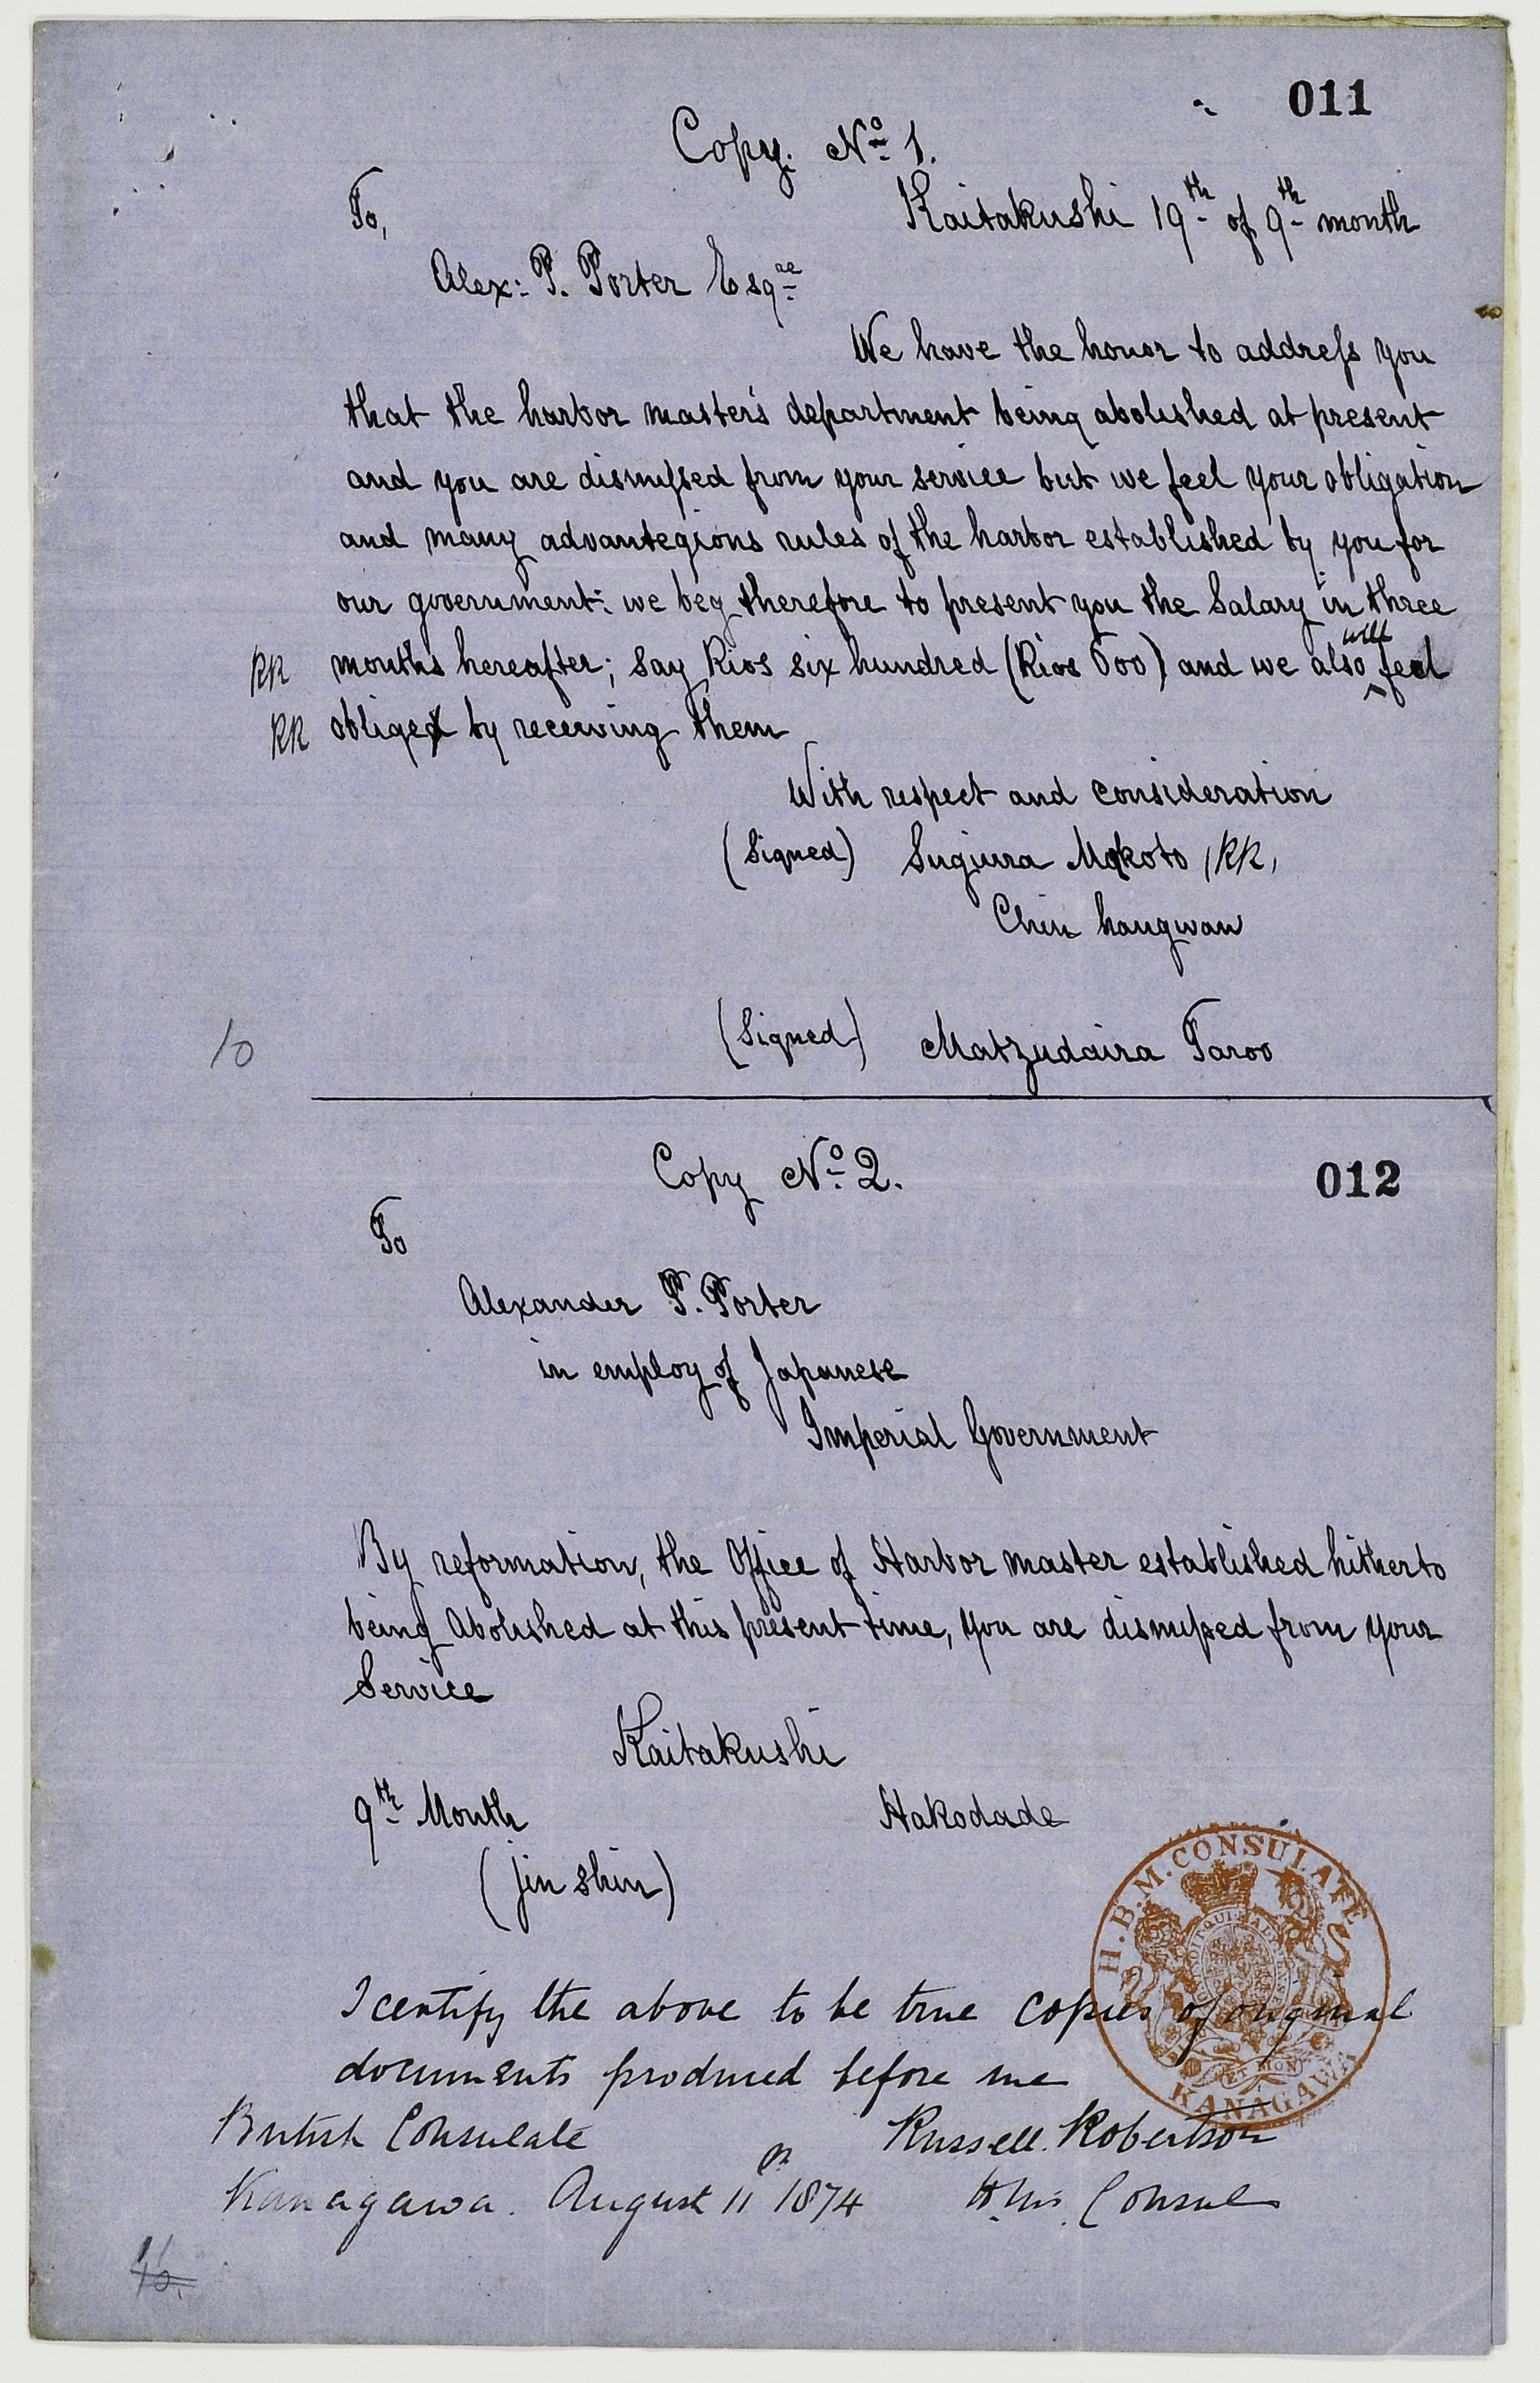 011
Copy. No 1.
To,
Kaitakushi 19th of 9th month
Alex: P. Porter Esqre
We have the honor to address you
that the harbor master's department being abolished at present
and you are dismissed from your service but we feel your obligation
and many advantegions rules of the harbor established by you for
our government: we beg therefore to present you the Salary in three
RR months hereafter; say Rios six hundred (Rios 600) and we also will feel
RR obliged by receiving them
With respect and consideration
(Signed) Sugiura Makoto (RR)
Chin hangwan
(Signed) Matzudaira Taroo
10
Copy No 2.
012
To
Alexander P. Porter
in employ of Japanese
Imperial Government
By reformation, the Office of Harbor master established hitherto
being abolished at this present time, you are dismissed from your
Service
Kaitakushi
9th Month Hakodade
(jin shin)
H.B.M. CONSULATE
KANAGAWA
I certify the above to be true copies of original
documents produced before me
British Consulate Russell Robertson
Kanagawa. August 11th 1874 H.M's. Consul